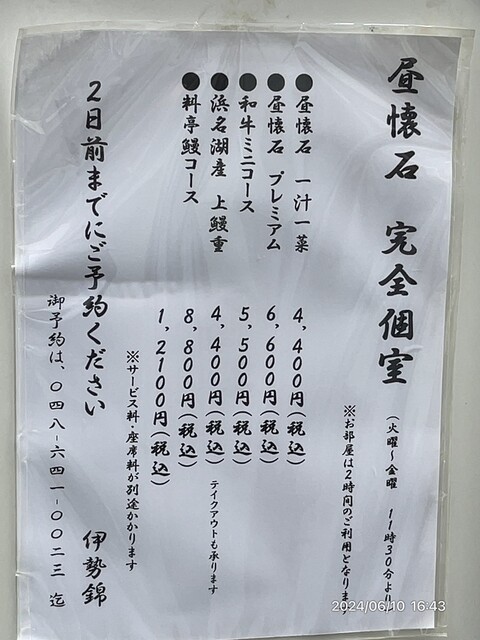 昼懐石 完全個室
(火曜～金曜 11時30分より
※お部屋は2時間のご利用となります
●昼懐石 一汁一菜 4,400円(税込)
●昼懐石 プレミアム 6,600円(税込)
●和牛ミニコース 5,500円(税込)
●浜名湖産 上鰻重 4,400円(税込) テイクアウトも承ります
●料亭鰻コース 8,800円(税込)
1,2100円(税込)
※サービス料・座席料が別途かかります
2日前までにご予約ください 伊勢錦
御予約は、〇四八-六四一-〇〇二三 迄
2024/06/10 16:43